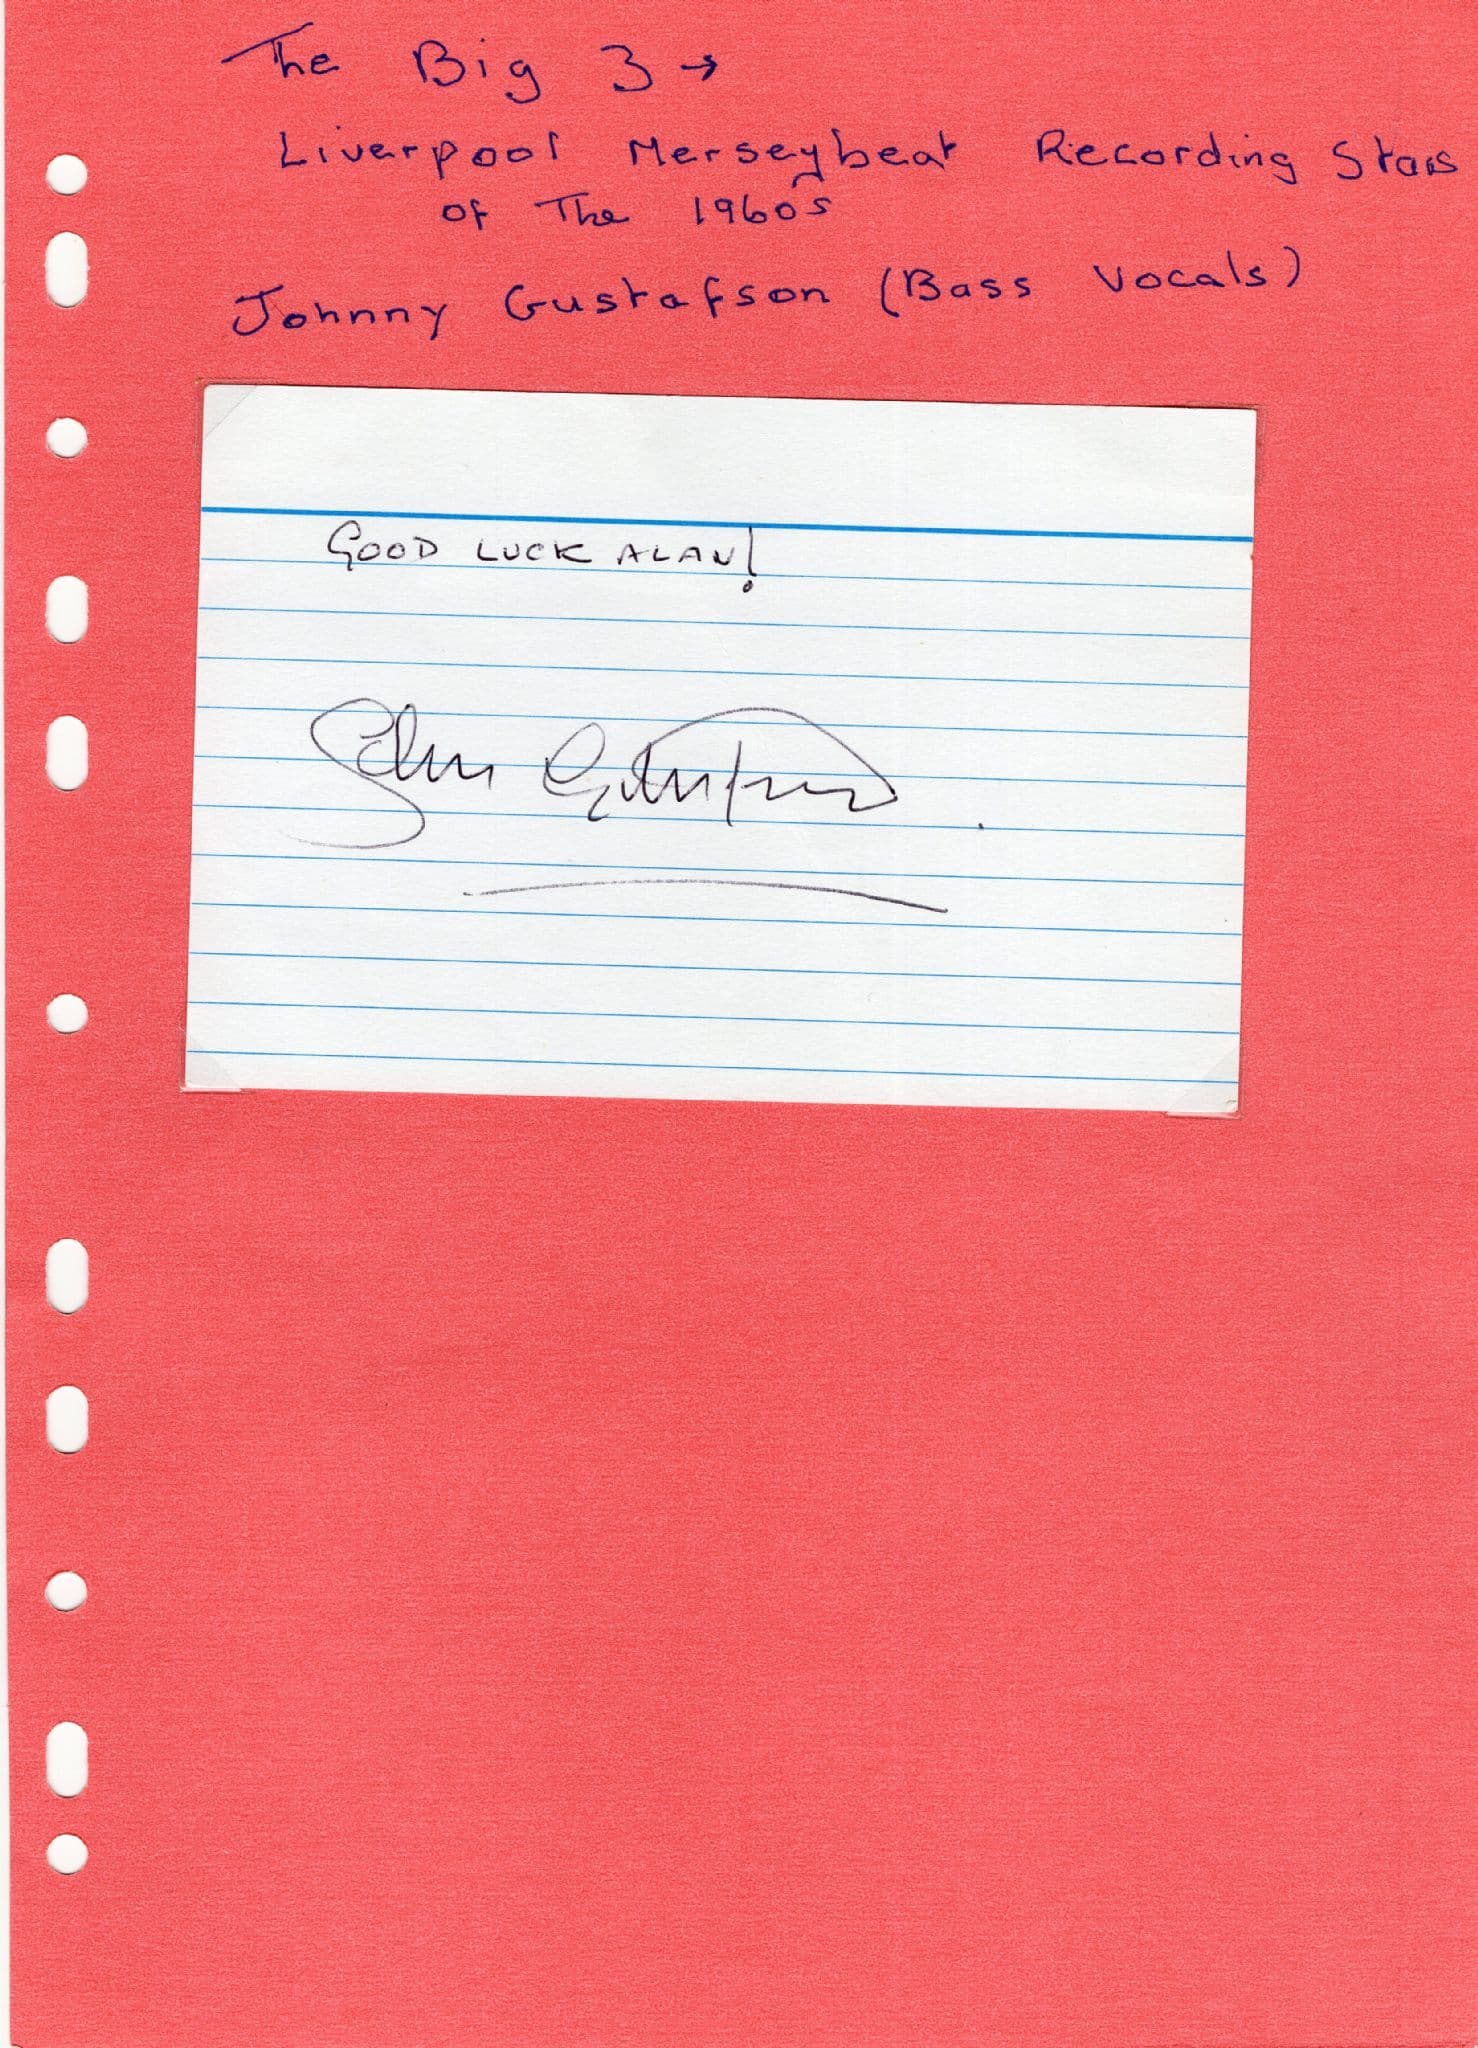 The Big 3 →
Liverpool Merseybeat Recording Stars
of The 1960s
Johnny Gustafson (Bass Vocals)
GOOD LUCK ALAN!
John Gustafson